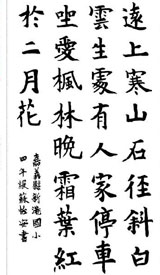 遠上寒山石徑斜白
雲生處有人家停車
坐愛楓林晚霜葉紅
於二月花
嘉義縣新港國小
四年級蘇安書